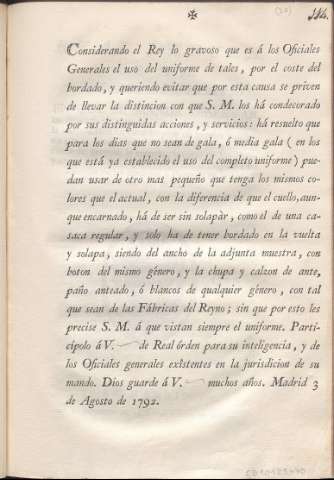 ✠
Considerando el Rey lo gravoso que es á los Oficiales
Generales el uso del uniforme de tales, por el coste del
bordado, y queriendo evitar que por esta causa se priven
de llevar la distincion con que S. M. los há condecorado
por sus distinguidas acciones, y servicios: há resuelto que
para los dias que no sean de gala, ó media gala (en los
que está ya establecido el uso del completo uniforme) pue-
dan usar de otro mas pequeño que tenga los mismos co-
lores que el actual, con la diferencia de que el cuello, aun-
que encarnado, há de ser sin solapàr, como el de una ca-
saca regular, y solo ha de tener bordado en la vuelta
y solapa, siendo del ancho de la adjunta muestra, con
boton del mismo género, y la chupa y calzon de ante,
paño anteado, ó blancos de qualquier género, con tal
que sean de las Fábricas del Reyno; sin que por esto les
precise S. M. á que vistan siempre el uniforme. Parti-
cípolo á V. de Real órden para su inteligencia, y de
los Oficiales generales exîstentes en la jurisdicion de su
mando. Dios guarde á V. muchos años. Madrid 3
de Agosto de 1792.